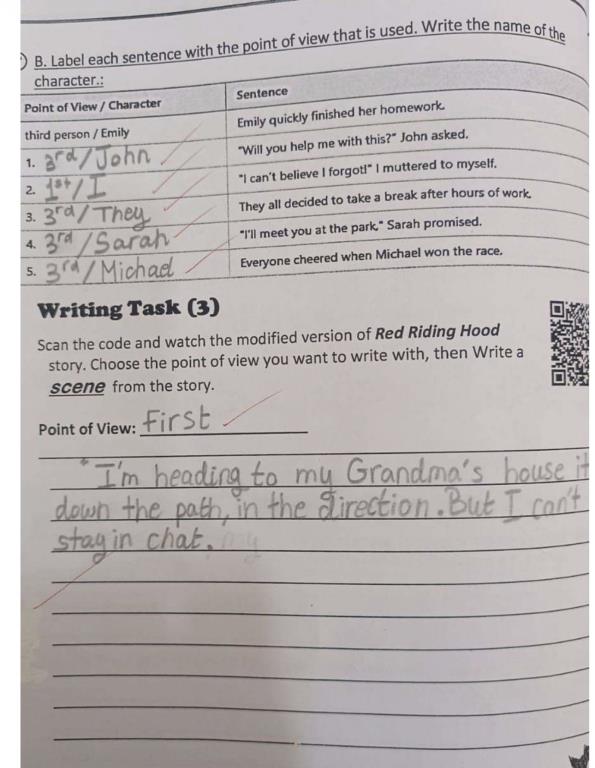 B. Label each sentence with the point of view that is used. Write the name of the
character.:
Point of View / Character Sentence
third person / Emily Emily quickly finished her homework.
1. 3rd/John "Will you help me with this?" John asked.
2. 1st/I "I can't believe I forgot!" I muttered to myself.
3. 3rd/They They all decided to take a break after hours of work.
4. 3rd/Sarah "I'll meet you at the park," Sarah promised.
5. 3rd/Michael Everyone cheered when Michael won the race.
Writing Task (3)
Scan the code and watch the modified version of Red Riding Hood
story. Choose the point of view you want to write with, then Write a
scene from the story.
Point of View: first
"I'm heading to my Grandma's house it
down the path, in the direction. But I can't
stay in chat.